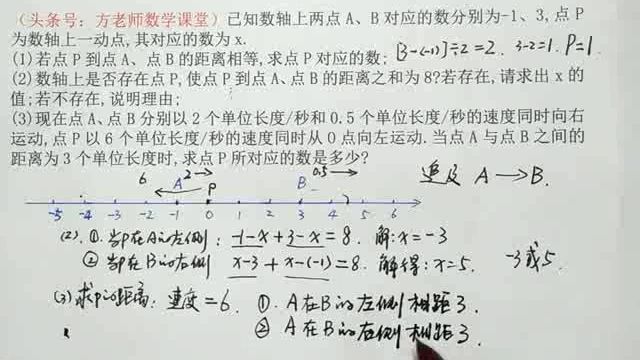 (头条号：方老师数学课堂)已知数轴上两点A、B对应的数分别为-1、3,点P
为数轴上一动点,其对应的数为x.
(1)若点P到点A、点B的距离相等,求点P对应的数; [3-(-1)]÷2=2. 3-2=1. P=1
(2)数轴上是否存在点P,使点P到点A、点B的距离之和为8?若存在,请求出x的
值;若不存在,说明理由;
(3)现在点A、点B分别以2个单位长度/秒和0.5个单位长度/秒的速度同时向右
运动,点P以6个单位长度/秒的速度同时从O点向左运动.当点A与点B之间的
距离为3个单位长度时,求点P所对应的数是多少?
追及 A→B.
6 A 2→ P B 0.5→
-5 -4 -3 -2 -1 0 1 2 3 4 5 6
(2). ① 当P在A的左侧: -1-x+3-x=8. 解:x=-3
② 当P在B的右侧 x-3+x-(-1)=8. 解得:x=5. -3或5.
(3)求P的距离: 速度=6. ①. A在B的左侧相距3.
② A在B的右侧相距3.